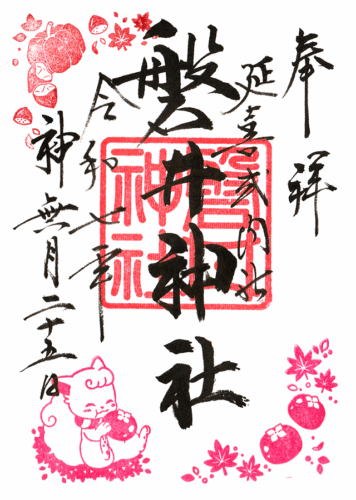 奉拝
延喜式内社
磐井神社
磐井神社
令和七年
神無月二十五日